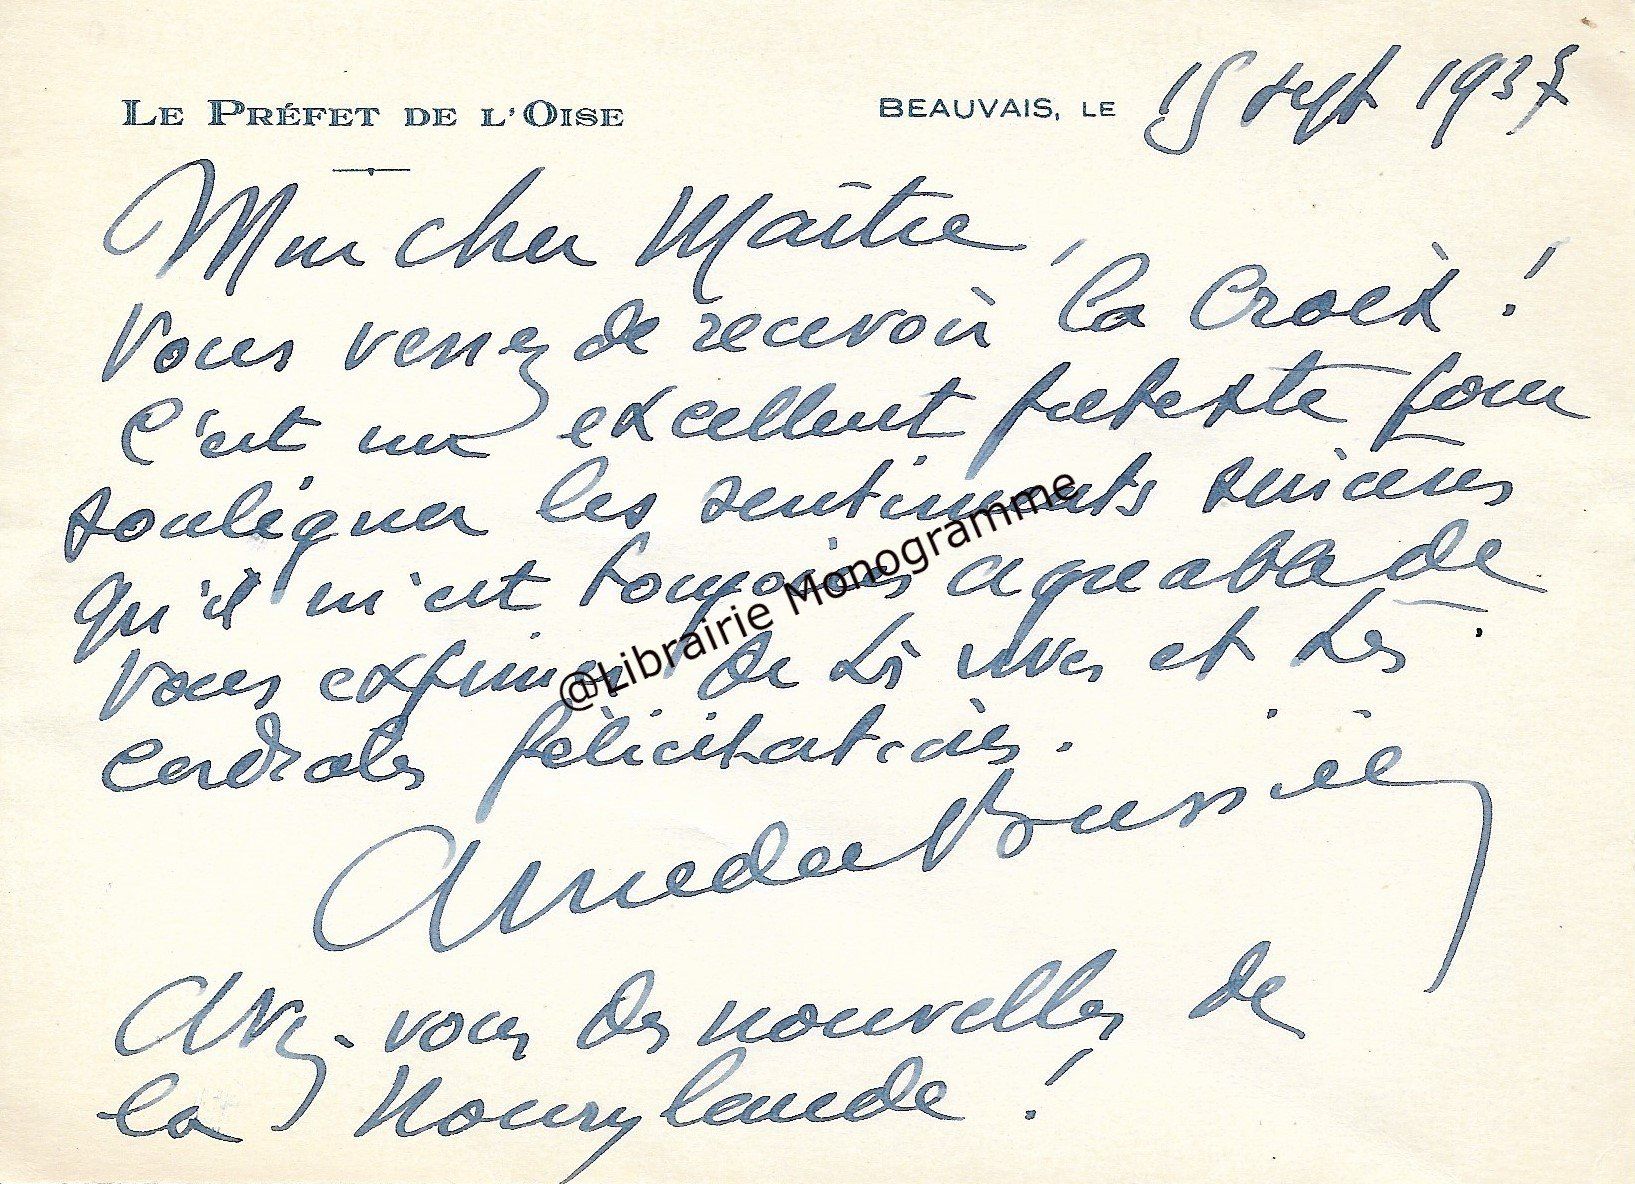 LE PRÉFET DE L'OISE
BEAUVAIS, LE 15 sept 1937
Mon cher Maître,
Vous venez de recevoir la Croix !
C'est un excellent prétexte pour
souligner les sentiments sincères
qu'il m'est toujours agréable de
vous exprimer. De très vives et très
cordiales félicitations.
Amédée Bussière
Avez-vous des nouvelles de
la Nourylande !
@Librairie Monogramme